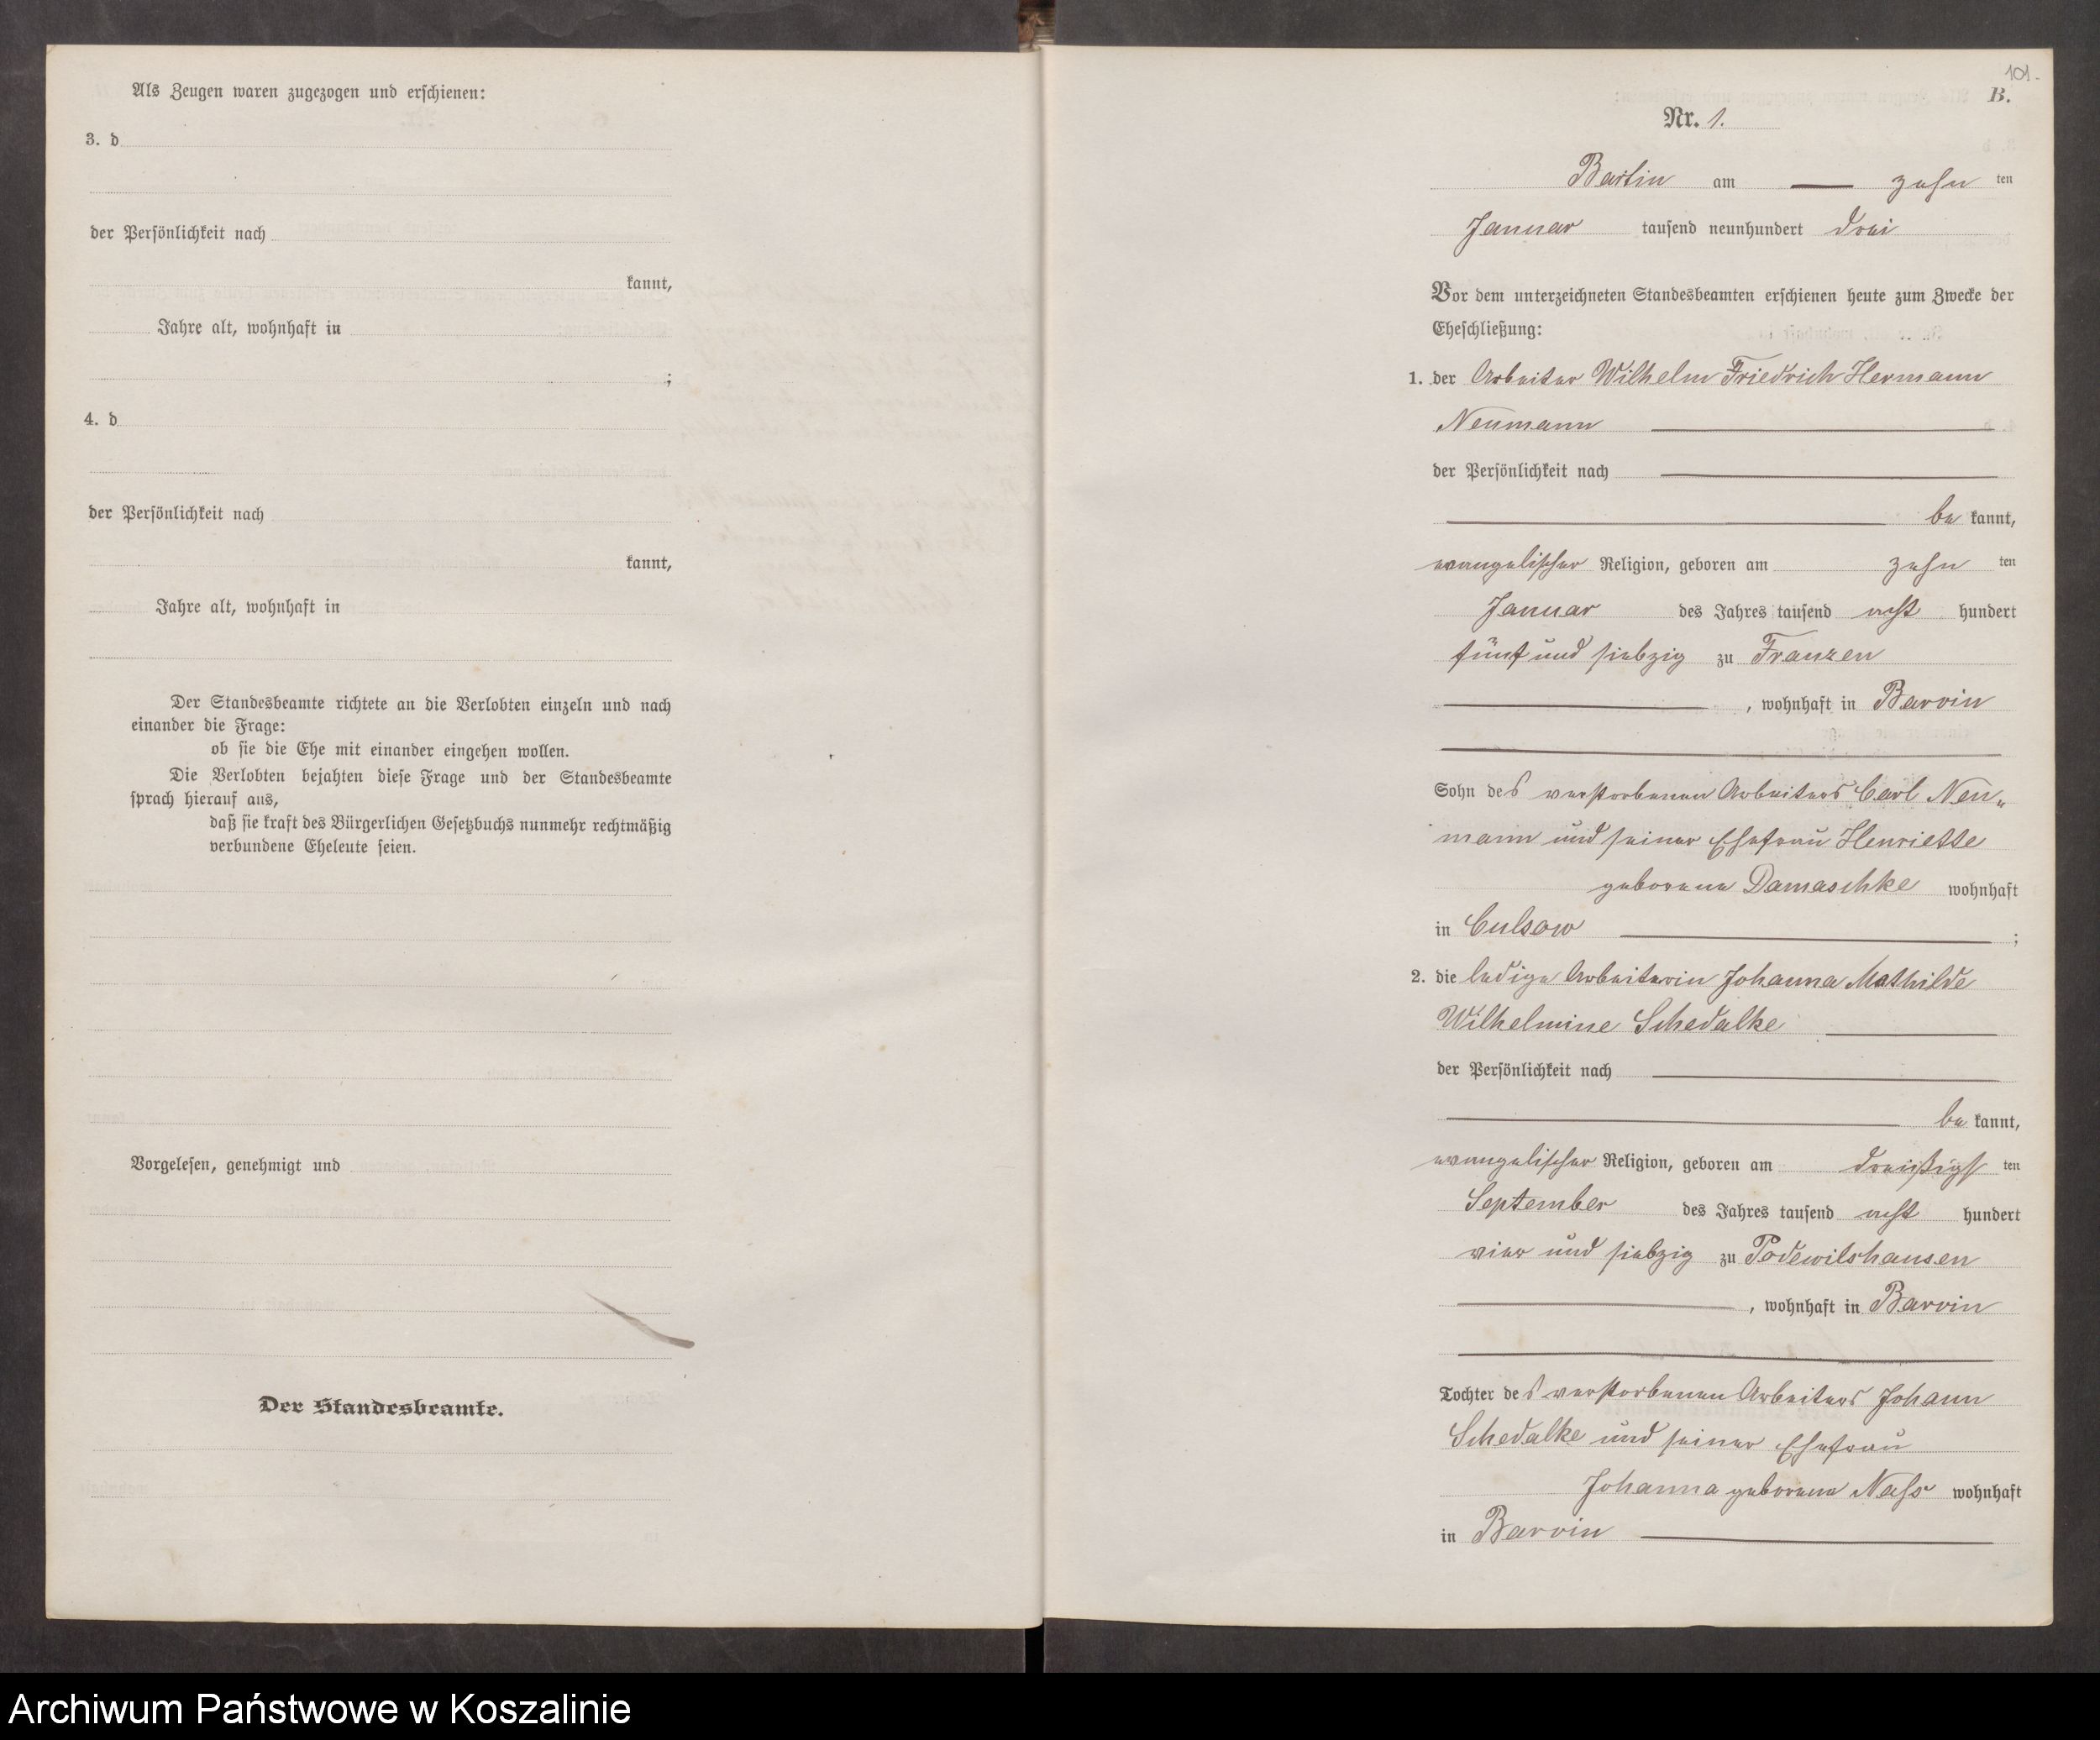 Als Zeugen waren zugezogen und erschienen:
3. d
der Persönlichkeit nach
kannt,
Jahre alt, wohnhaft in
;
4. d
der Persönlichkeit nach
kannt,
Jahre alt, wohnhaft in
Der Standesbeamte richtete an die Verlobten einzeln und nach
einander die Frage:
ob sie die Ehe mit einander eingehen wollen.
Die Verlobten bejahten diese Frage und der Standesbeamte
sprach hierauf aus,
daß sie kraft des Bürgerlichen Gesetzbuchs nunmehr rechtmäßig
verbundene Eheleute seien.
Vorgelesen, genehmigt und
Der Standesbeamte.
101.
B.
Nr. 1.
Bartin am zehn ten
Januar tausend neunhundert drei
Vor dem unterzeichneten Standesbeamten erschienen heute zum Zwecke der
Eheschließung:
1. der Arbeiter Wilhelm Friedrich Hermann
Neumann
der Persönlichkeit nach
be kannt,
evangelischer Religion, geboren am zehn ten
Januar des Jahres tausend acht hundert
fünf und siebzig zu Franzen
, wohnhaft in Barvin
Sohn des verstorbenen Arbeiters Carl Neu„
mann und seiner Ehefrau Henriette
geborene Damaschke wohnhaft
in Culsow ;
2. die ledige Arbeiterin Johanna Mathilde
Wilhelmine Schedalke
der Persönlichkeit nach
be kannt,
evangelischer Religion, geboren am dreißigs ten
September des Jahres tausend acht hundert
vier und siebzig zu Podewilshausen
, wohnhaft in Barvin
Tochter des verstorbenen Arbeiters Johann
Schedalke und seiner Ehefrau
Johanna geborene Nass wohnhaft
in Barvin
Archiwum Państwowe w Koszalinie